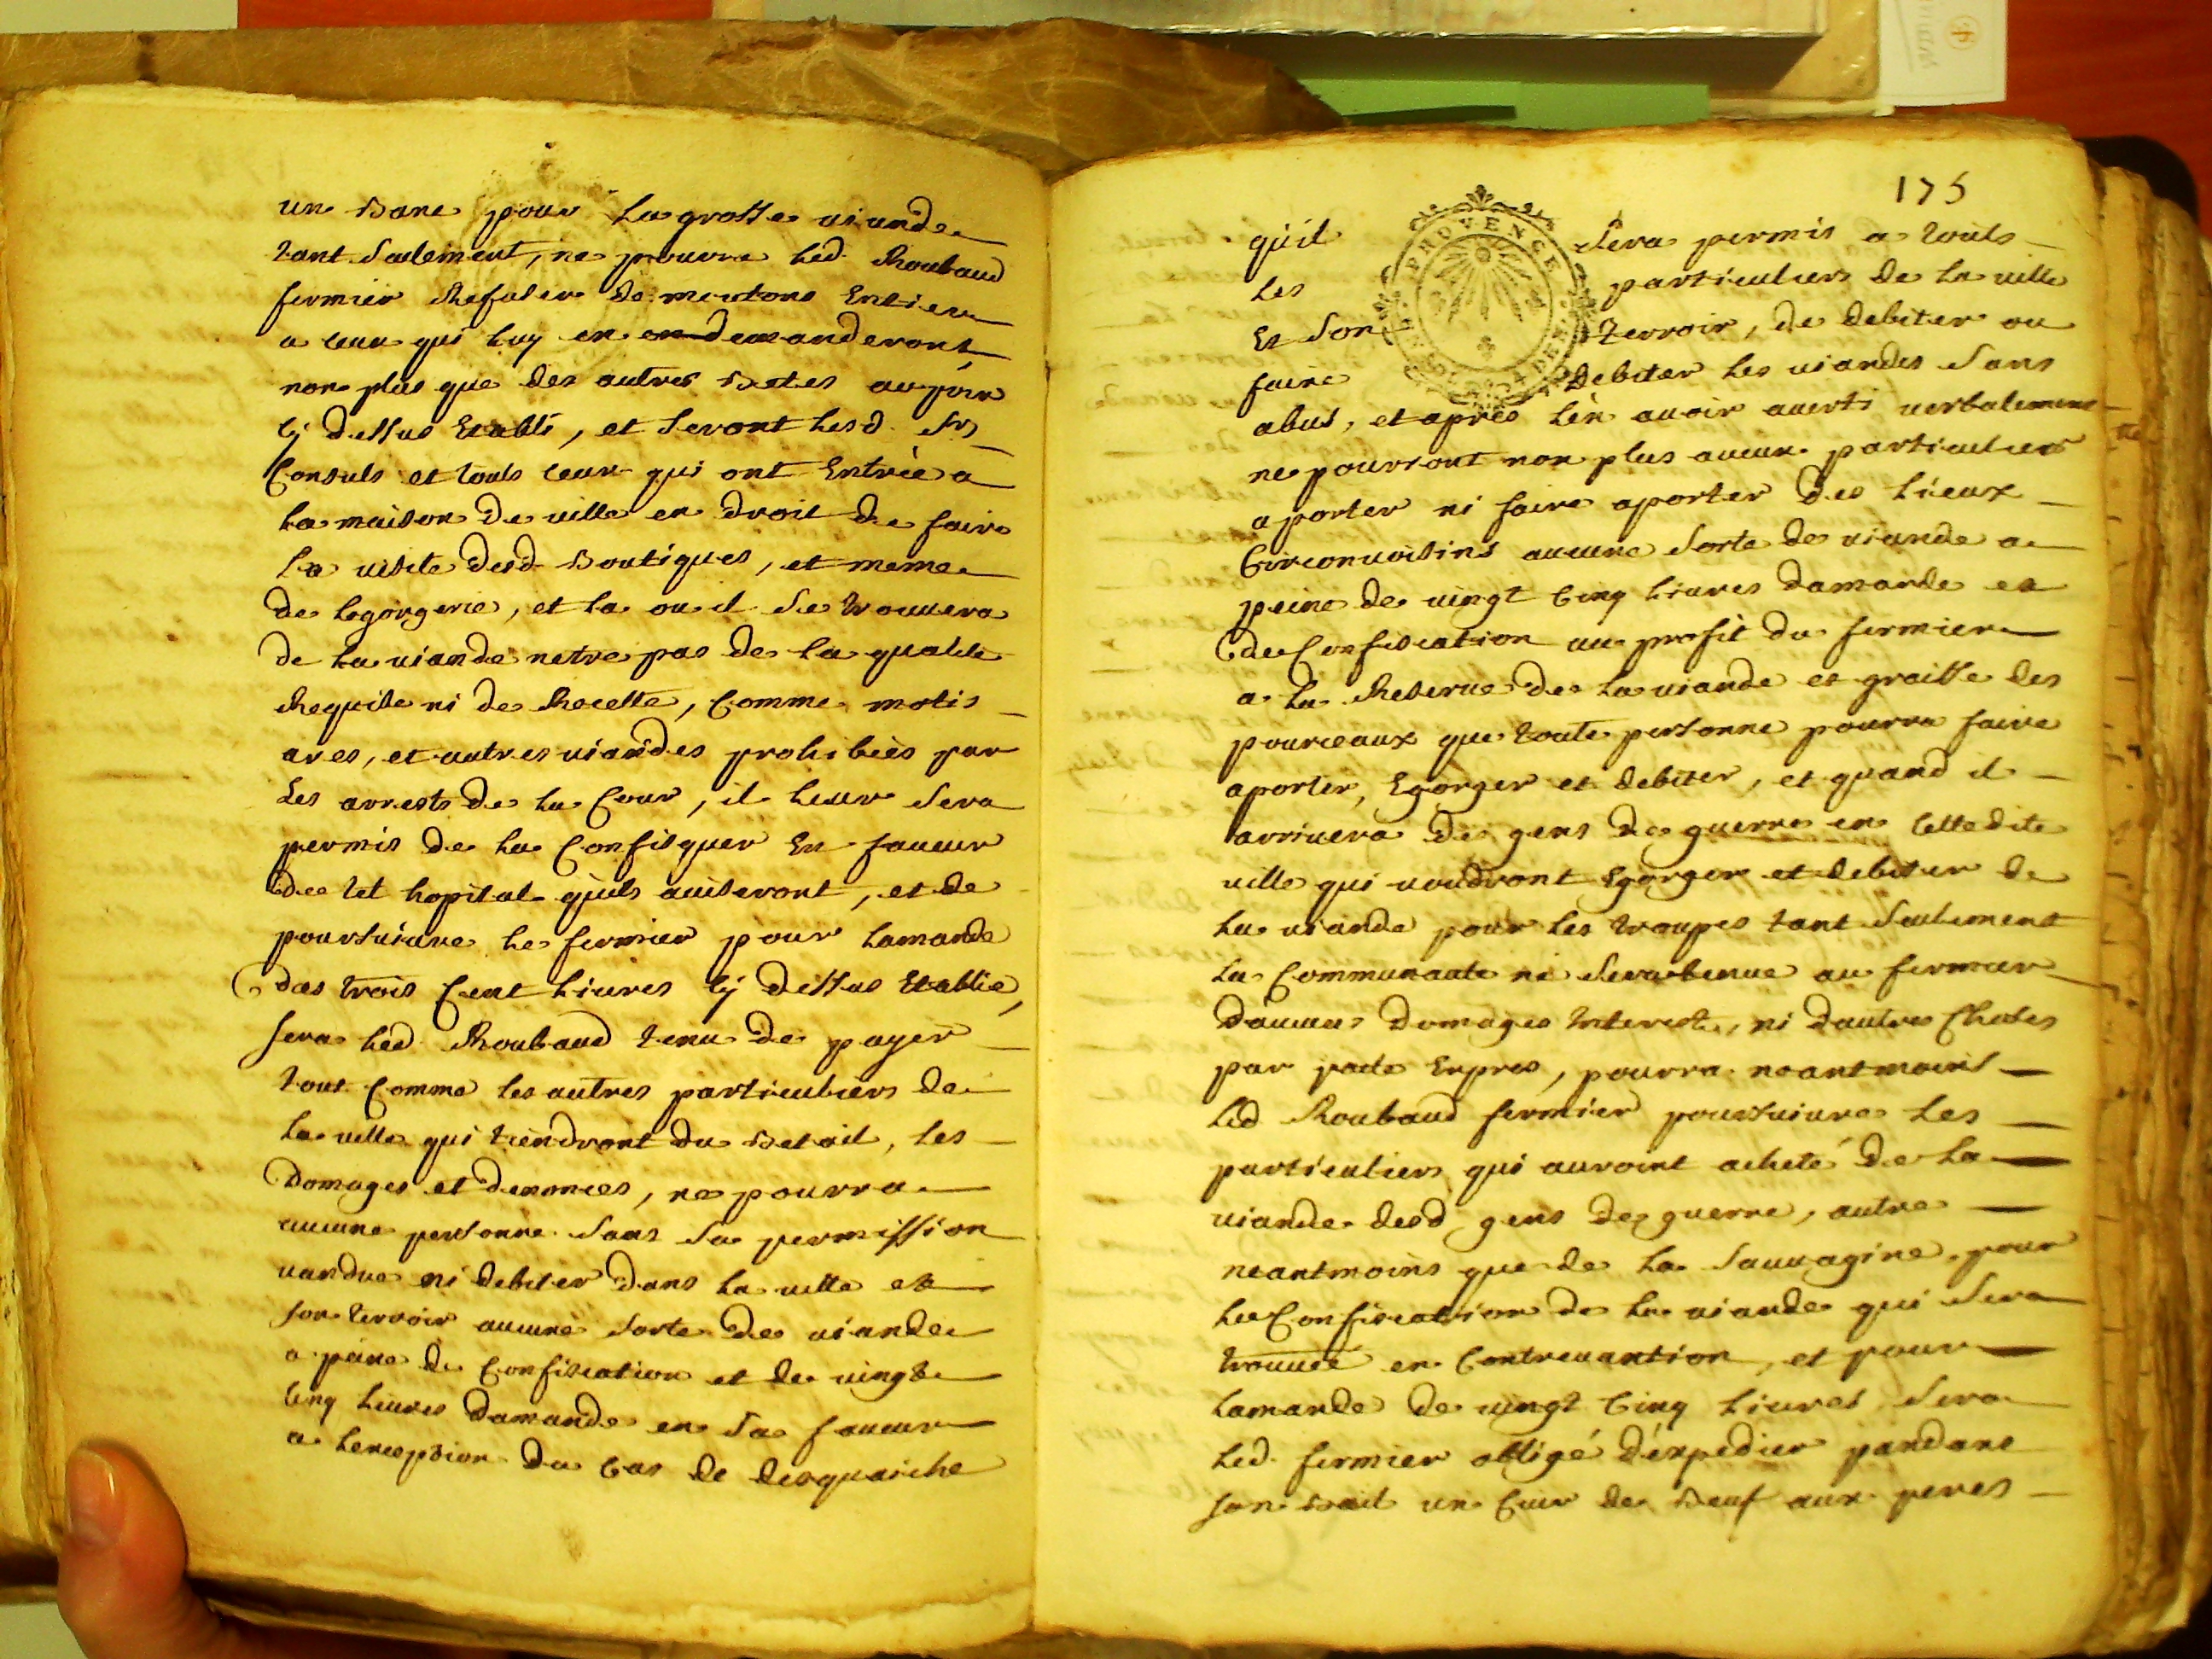 un banc pour la grosse viande
tant seulement, ne pouvra led. Roubaud
fermier Refuser de moutons Entiers
a ceux qui luy en demanderont
non plus que des autres betes au prix
cy dessus Etabli, et seront lesd. srs
Consuls et touts ceux qui ont Entrée a
la maison de ville en droit de faire
la visite desd boutiques, et meme
de legorgerie, et la ou il se trouvera
de la viande netre pas de la qualite
Requise ni de Recette, Comme motis
ares, et autres viandes prohibées par
Les arrests de la Cour, il leur sera
permis de la Confisquer En faveur
de tel hopital quils aviseront, et de
poursuivre le fermier pour lamande
des trois Cent livres cy dessus Etablie,
sera led. Roubaud tenu de payer
tout Comme les autres particuliers de
la ville qui tiendront du betail, les
Domages et denonces, ne pourra
aucune personne sans sa permission
vandre ni debiter dans la ville et
son terroir aucune sorte de viande
a peine de Confiscation et de vingt
Cinq livres damande en sa faveur
a lexception du Cas de desquaiche
175
PROVENCE
quil sera permis a touts
Les particuliers de la ville
Et son terroir, de debiter ou
faire debiter les viandes sans
abus, et apres len avoir averti verbalement
ne pourront non plus aucun particulier
aporter ni faire aporter des lieux
Circonvoisins aucune sorte de viande a
peine de vingt Cinq livres damande et
de Confiscation au profit du fermier
a la Reserve de la viande et graisse des
pourceaux que toute personne pourra faire
aporter, Egorger et debiter, et quand il
arrivera des gens de guerre en cettedite
ville qui voudront Egorger et debiter de
la viande pour les troupes tant seulement
la Communaute ne sera tenue au fermier
daucuns Domages Interests, ni dautres Choses
par pacte Expres, pourra neantmoins
led Roubaud fermier poursuivre les
particuliers qui auroint acheté de la
viande desd gens de guerre, autre
neantmoins que de la sauvagine, pour
la Confiscation de la viande qui sera
trouvée en Contrevantion, et pour
lamande de vingt Cinq livres, sera
led. fermier obligé d'expedier pandant
son bail un Cuir de beuf aux peres